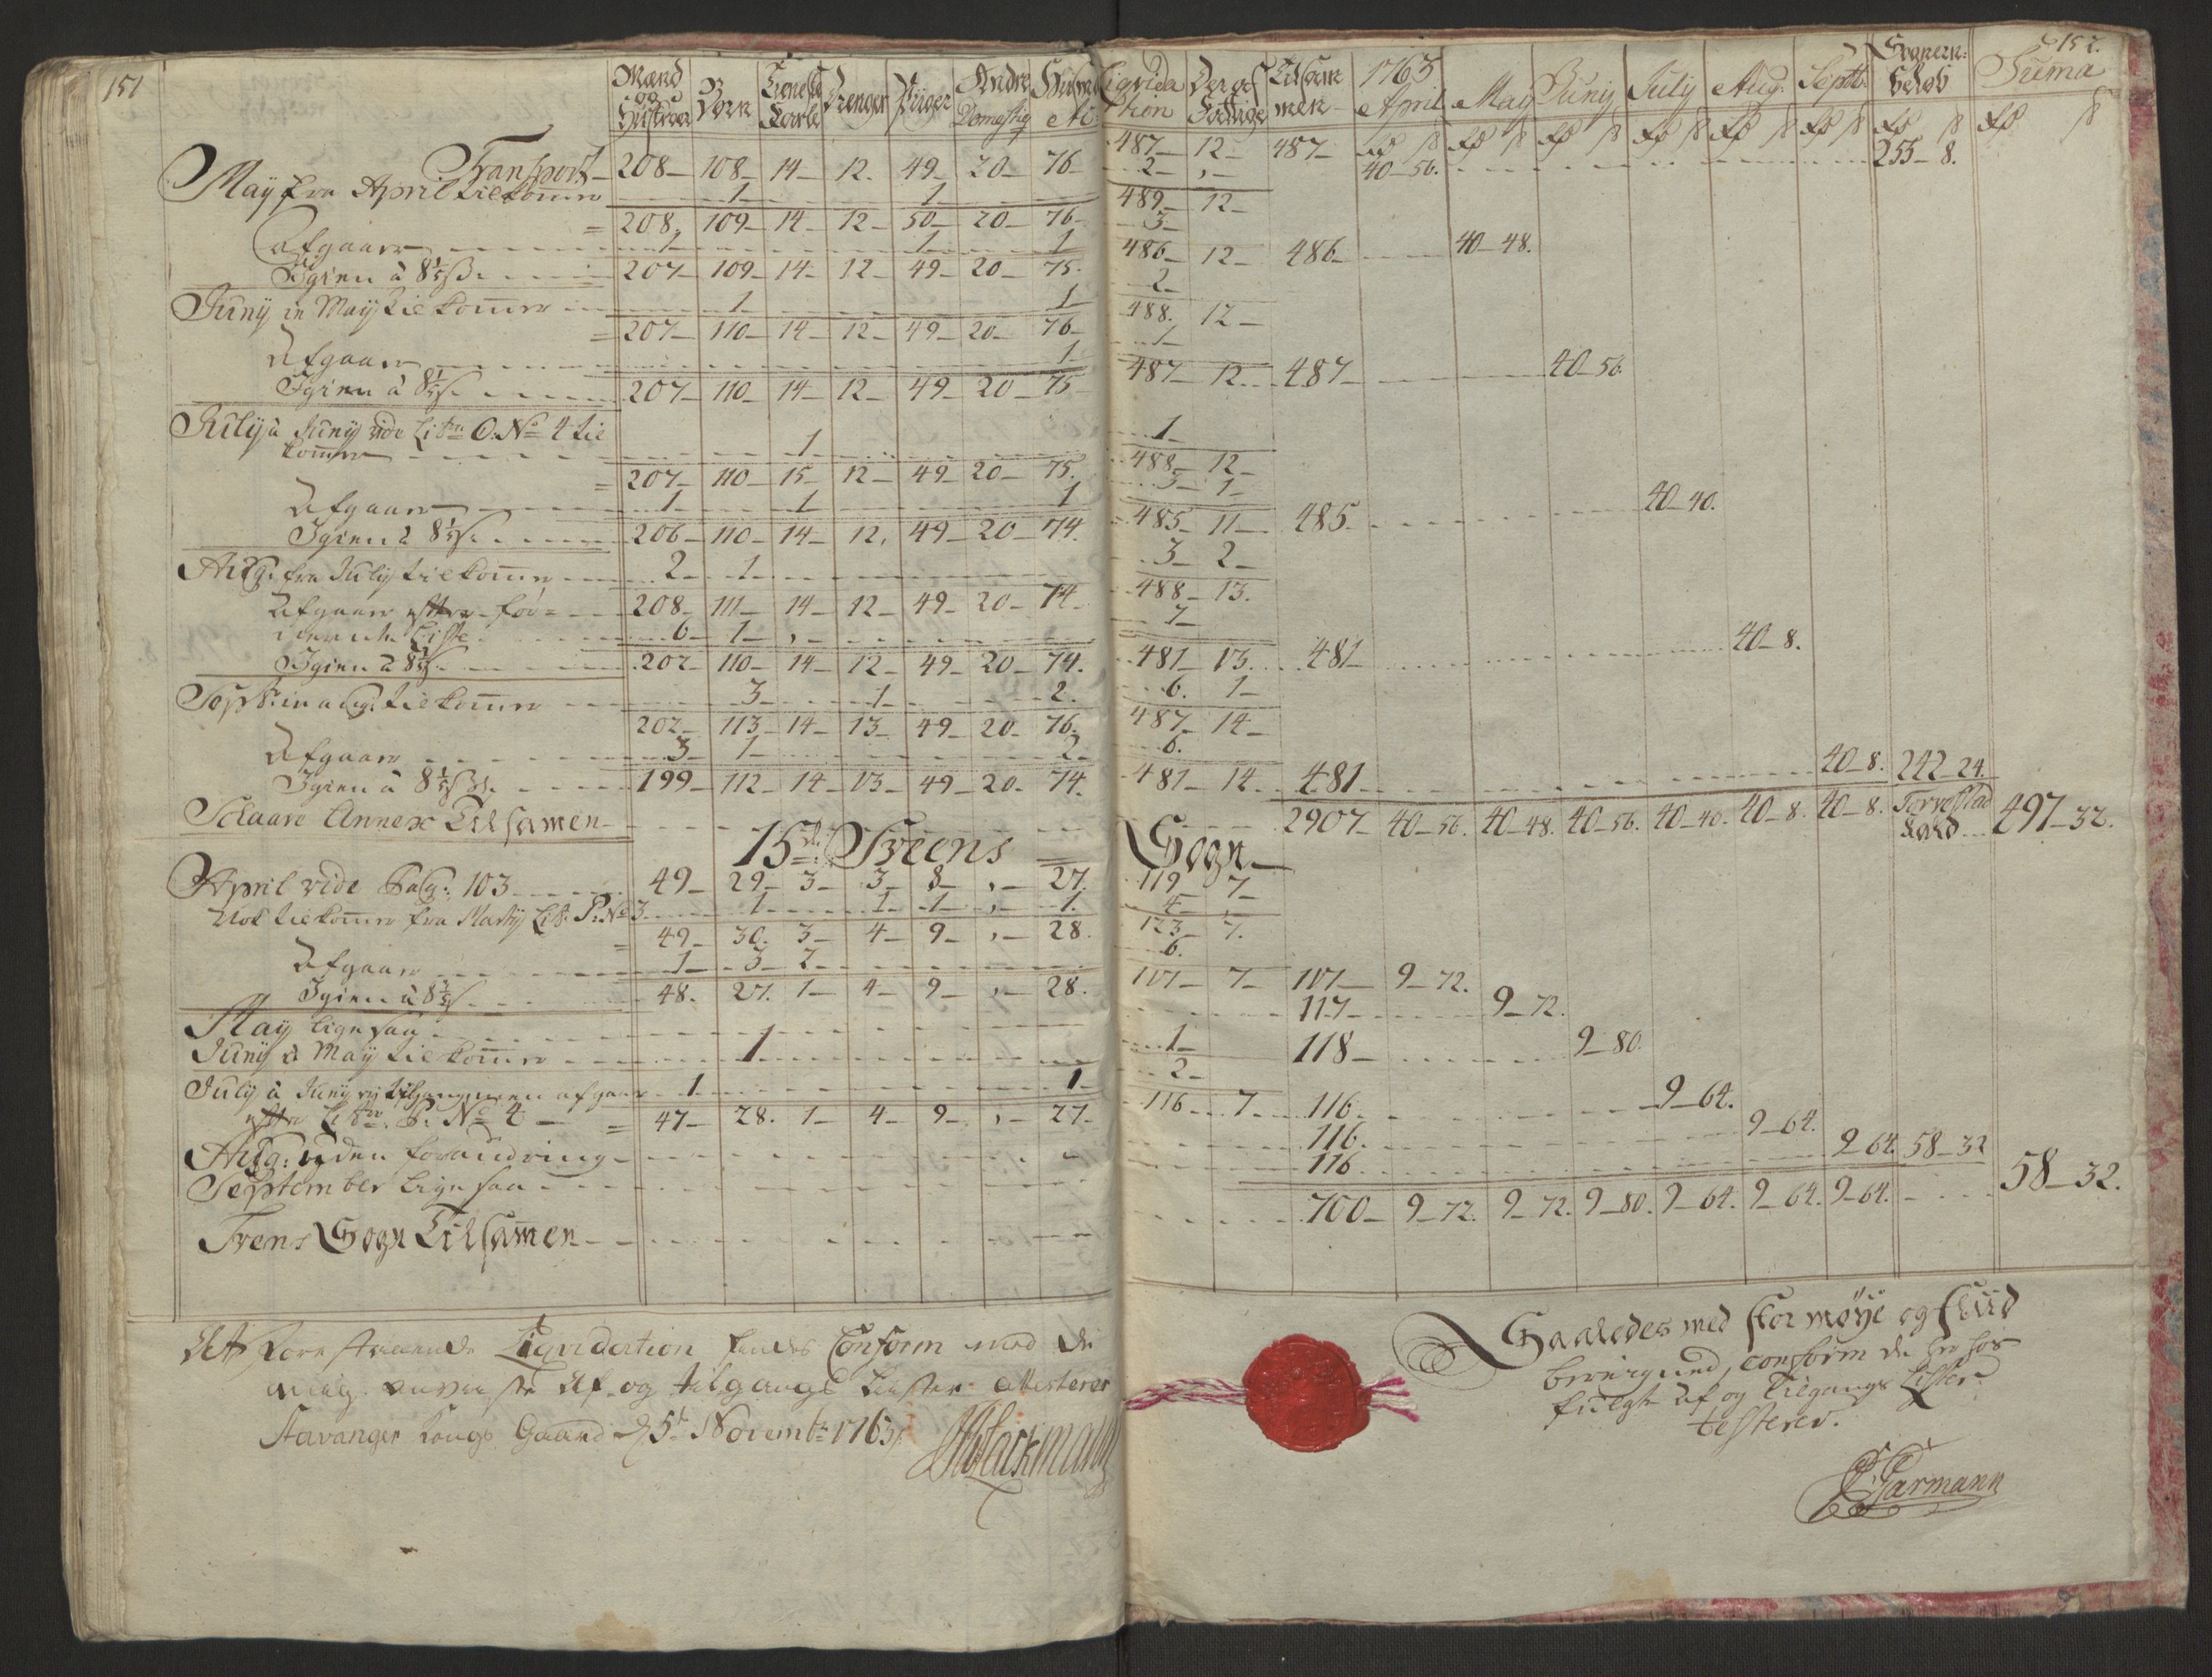 151
Mænd og Hustruer | Børn | Tieneste Karle | Drenger | Piiger | Andre Domestiq | Huusmd | Liqvidation | Der af Fattige | Tilsammen | 1763 April | May | Juny | July | Aug. | Septb. | Sognern: beløb | Suma
152.
rd ß | rd ß | rd ß | rd ß | rd ß | rd ß | rd ß | rd ß
Transport 208 108 14 12. 49 20 76 487 12 487 40 56. 255 8.
May fra April tilkommer 1 1 2
= 208. 109 14 12 50 20 76 489 12
Afgaar 1 1 1 3
Igien à 8⅓ß. 207 109 14 12 49 20 75. 486 12 486 40 48.
Juny in May tilkommer 1 1 2
= 207 110 14 12 49 20 76 488. 12
Afgaar 1 1
Igien à 8⅓ß. 207 110 14 12 49 20 75 487 12 487 40 56.
July à Juny vide Litra O: No 4 til
kommer 1 1
= 207 110 15 12 49 20 75. 488 12
Afgaar 1 1 1 3 1
Igien à 8⅓ß. 206 110 14 12. 49 20 74. 485 11 485. 40 40.
Aug: fra July tilkommer 2 1 3 2
208 111 14 12 49 20 74 488 13.
Afgaar efter for=
Liste 6 1 7
Igien à 8⅓ß. 202 110 14 12 49 20 74. 481 13. 481 40 8.
Septb: in Aug: tilkommer 3 1 2. 6. 1
202 113 14 13 49 20 76. 487 14
Afgaar 3 1 2 6.
Igien à 8⅓ß. 199 112 14 13 49 20. 74. 481 14 481 40 8. 242 24.
Schaare Annex Tilsamen 2907 40 56. 40 48. 40 56. 40 40. 40 8. 40 8. Torvestad 497 32.
15de Sveens Sogn
April vide Pag: 103 49 29 3 3 8 , 27. 119 7
Nok tilkommer fra Martij Lit: P: No 3 1 1 1 , 1. 4
= 49 30. 3 4 9 , 28. 123 7.
Afgaar 1 3 2 6.
Igien à 8⅓ß. 48. 27. 1 4 9 , 28. 117 7 117 9 72.
May ligesaa 117 9 72.
Juny à May tilkommer 1 1 118 9 80.
July à Juny afgaar 1 1 2
efter Litra P: No 4 = 47 28. 1 4 9 , 27 116 7 116. 9 64.
Aug: uden forandring 116. 9 64.
September ligesaa 116 9 64 58 32
Svens Sogn Tilsamen 700 9 72. 9 72. 9 80. 9 64. 9 64. 9 64. 58 32.
At forestaaende Liqvidation findes Conform med de
mig anviiste Af og tilgangs Lister attesterer
Stavanger Kongs Gaard d 5te Novembr 1763
Saaledes med stor møye og fliid
beregned, conform de her hos
fulgte af og Tilgangs Lister
testerer.
Garmann